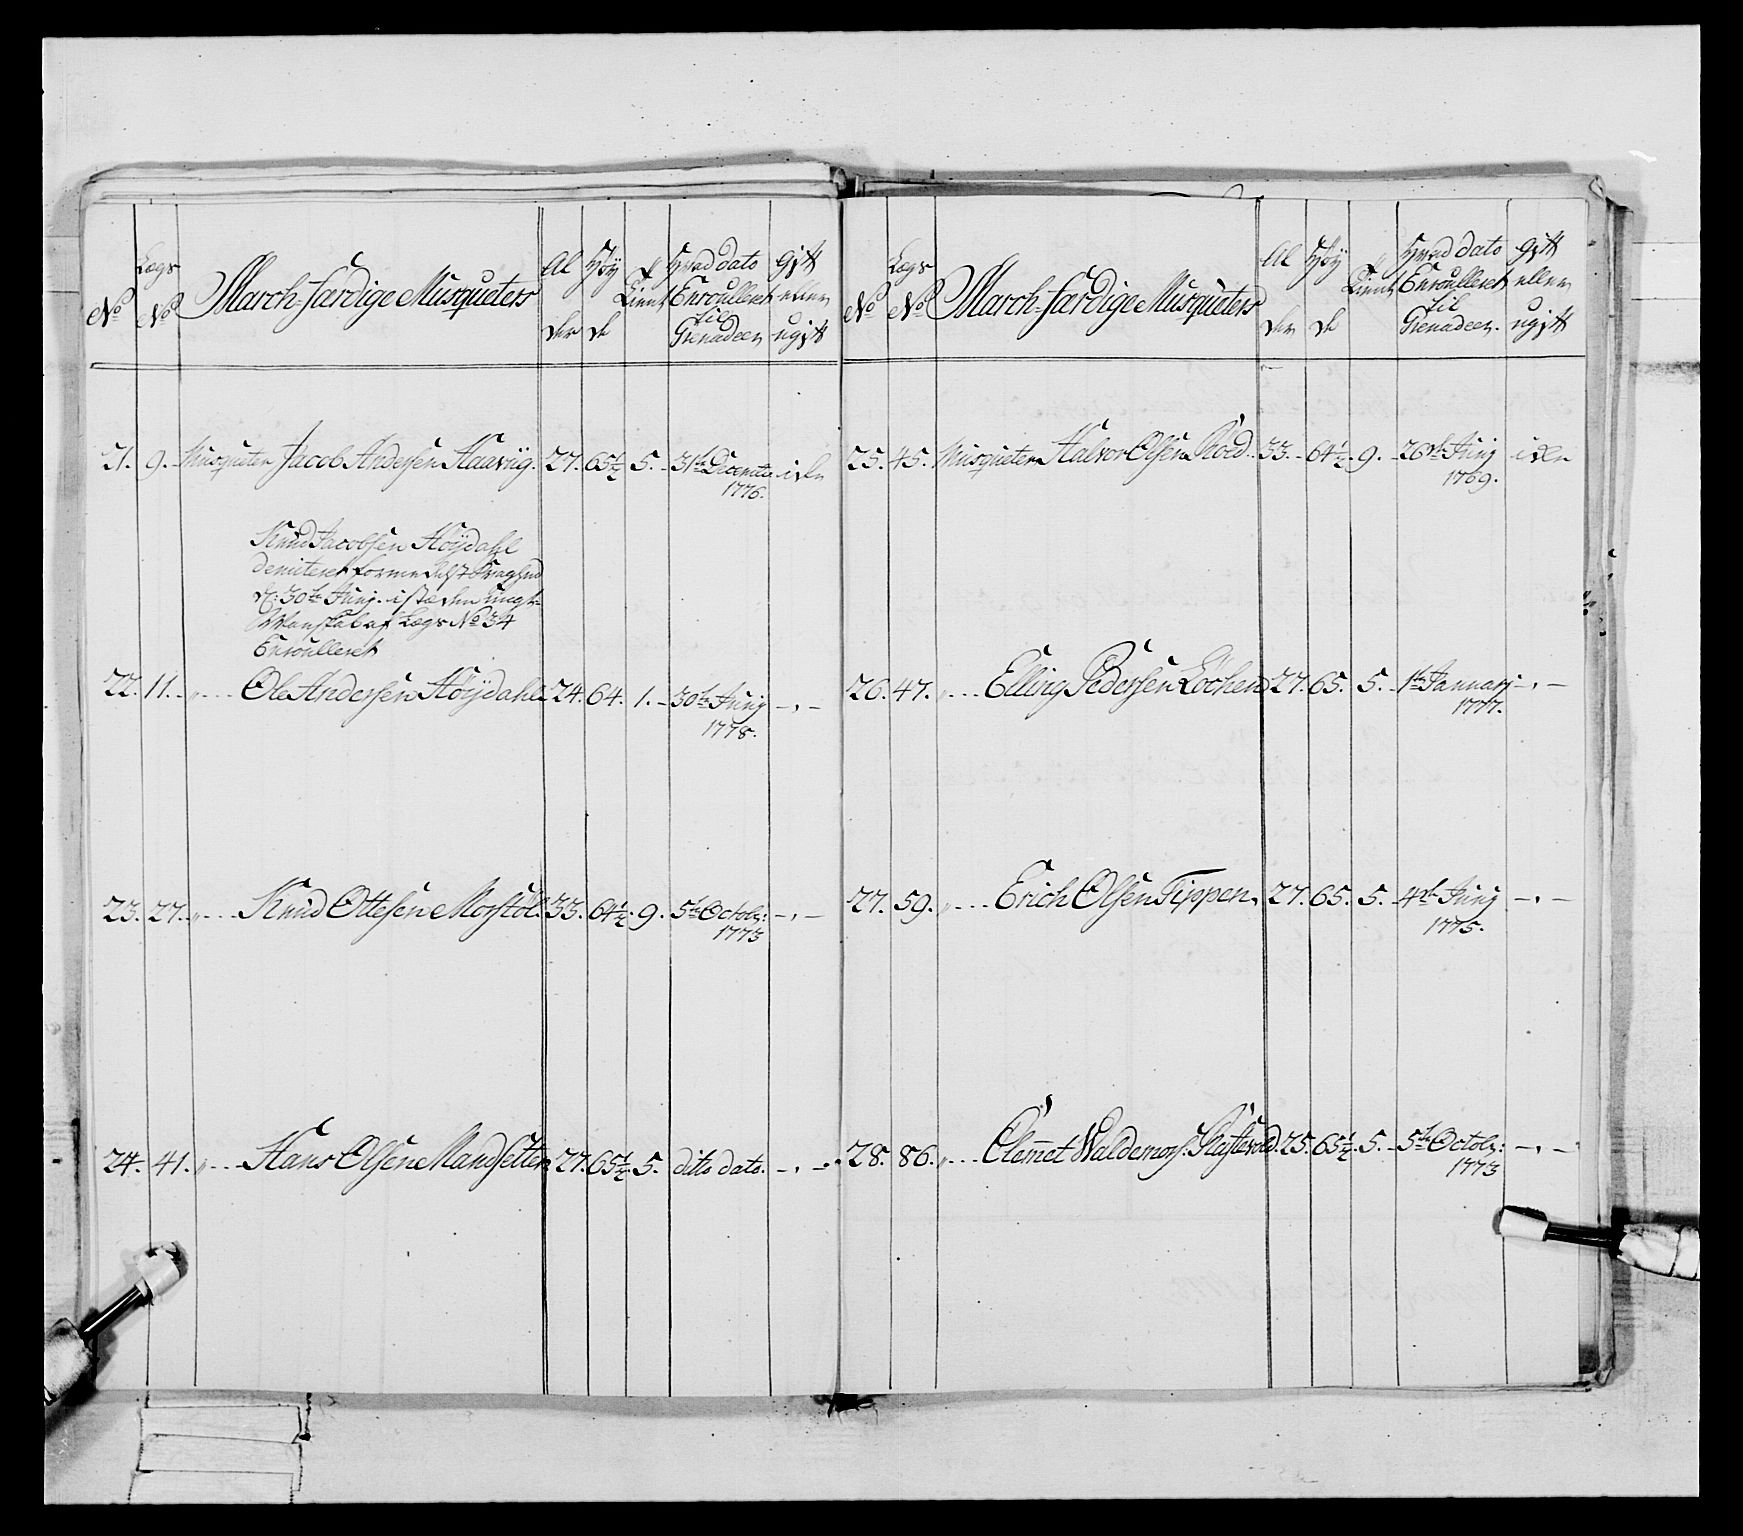 No
Lægs No
March-færdige Musqueters
Al der
Høy de
Tient
Hvad dato Enroulleret til Grenadeer
Gift eller ugift
21. 9. Musqueter Jacob Andersen Haavüg. 27. 65½ 5. 31te Decembr 1776.
Knud Jacobsen Høydahl
demiteret formedelst Svaghed
d: 30te Junj. istæden
Manskab af Lægs No 34
Enroulleret
22. 11. „ Ole Andersen Høydahl 24. 64. 1. 30te Junj 1778. – „ –
23. 27. „ Knud Ottesen Morstöl. 33. 64½. 9. 5te Octobr: 1773 – „ –
24. 41. „ Hans Olsen Mandsetter 27. 65½ 5. dito dato. – „ –
No
Lægs No
March-færdige Musqueters
Al der
Høy de
Tient
Hvad dato Enroulleret til Grenadeer.
Gift eller ugift
25. 45. Musqueter Halvor Olsen Röed. 33. 64½. 9. 26de Junj 1769.
26. 47. „ Elling Pedersen Löchen 27. 65. 5. 1te Januarj 1777. – „ –
27. 59. „ Erich Olsen Tippen. 27. 65. 5. 4de Junj 1775. – „ –
28. 86. „ Clemet Waldemors: 25. 65½. 5. 5te Octobr: 1773 – „ –